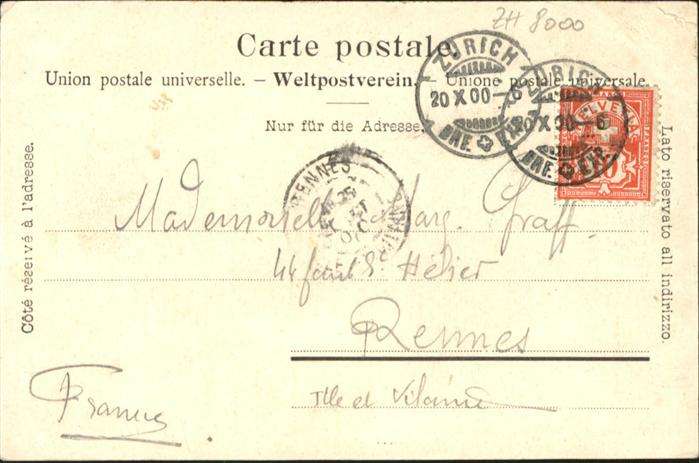 ZH 8000
Carte postale.
Union postale universelle. – Weltpostverein. – Unione postale universale.
Nur für die Adresse.
ZÜRICH
20 X 00
BRF.
HELVETIA
RENNES
Côté réservé à l'adresse.
Lato riservato all indirizzo.
Mademoiselle Marg. Graff
44 faub St Hélier
Rennes
Ille et Vilaine
France